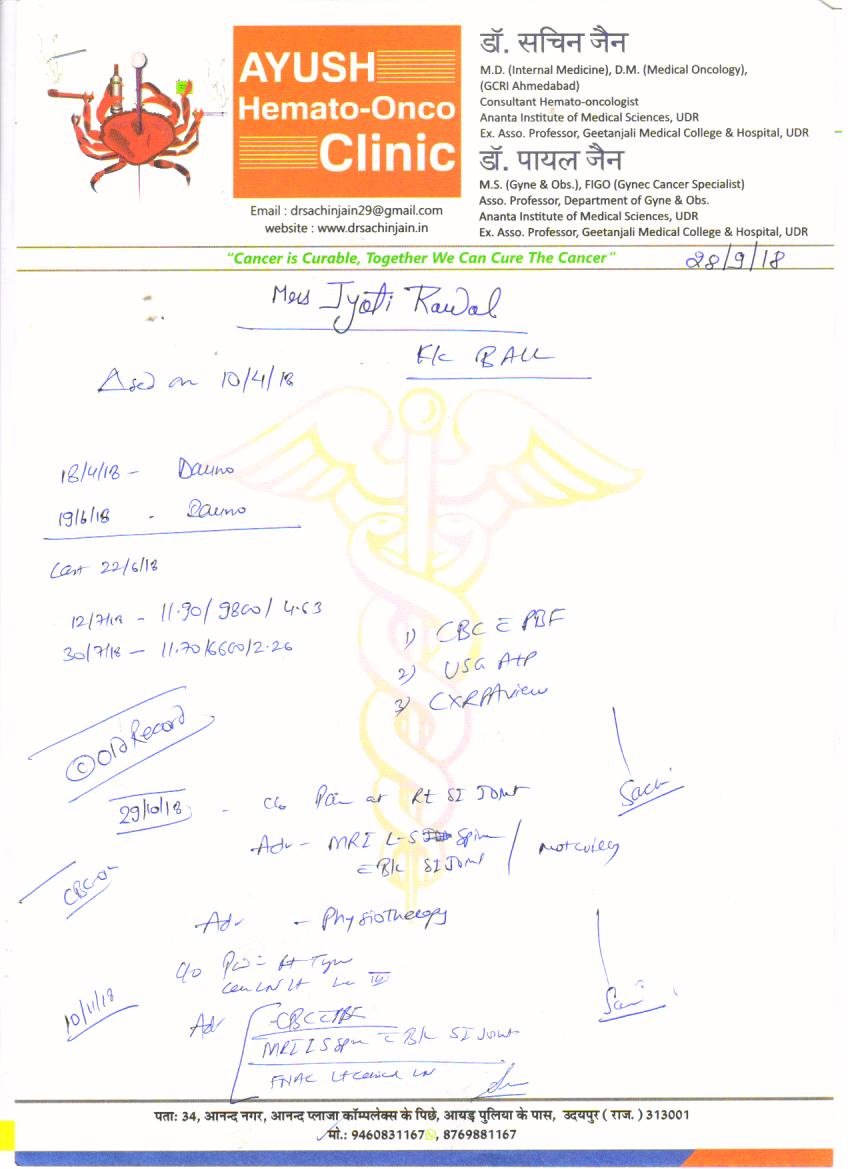 AYUSH
Hemato-Onco
Clinic
Email : drsachinjain29@gmail.com
website : www.drsachinjain.in
डॉ. सचिन जैन
M.D. (Internal Medicine), D.M. (Medical Oncology),
(GCRI Ahmedabad)
Consultant Hemato-oncologist
Ananta Institute of Medical Sciences, UDR
Ex. Asso. Professor, Geetanjali Medical College & Hospital, UDR
डॉ. पायल जैन
M.S. (Gyne & Obs.), FIGO (Gynec Cancer Specialist)
Asso. Professor, Department of Gyne & Obs.
Ananta Institute of Medical Sciences, UDR
Ex. Asso. Professor, Geetanjali Medical College & Hospital, UDR
"Cancer is Curable, Together We Can Cure The Cancer"
28/9/18
Jyoti Rawal
K/c BALL
Δsed on 10/4/18
18/4/18 - Dauno
19/6/18 - Dauno
Last 22/6/18
12/7/18 - 11.90/9800/4.63
30/7/18 - 11.70/6600/2.26
1) CBC c̄ PBF
2) USG A+P
3) CXR PA view
© Old Record
29/10/18 - C/o Pain at Rt SI Joint
Adv - MRI L-S Spine
c̄ B/L SI Joint
CBC
Adv - Physiotherapy
10/11/18
C/o
Adv
CBC c̄ PBF
MRI LS Spine c̄ B/L SI Joint
FNAC Lt cervical LN
पता: 34, आनन्द नगर, आनन्द प्लाजा कॉम्पलेक्स के पिछे, आयड़ पुलिया के पास, उदयपुर ( राज. ) 313001
मो.: 9460831167, 8769881167